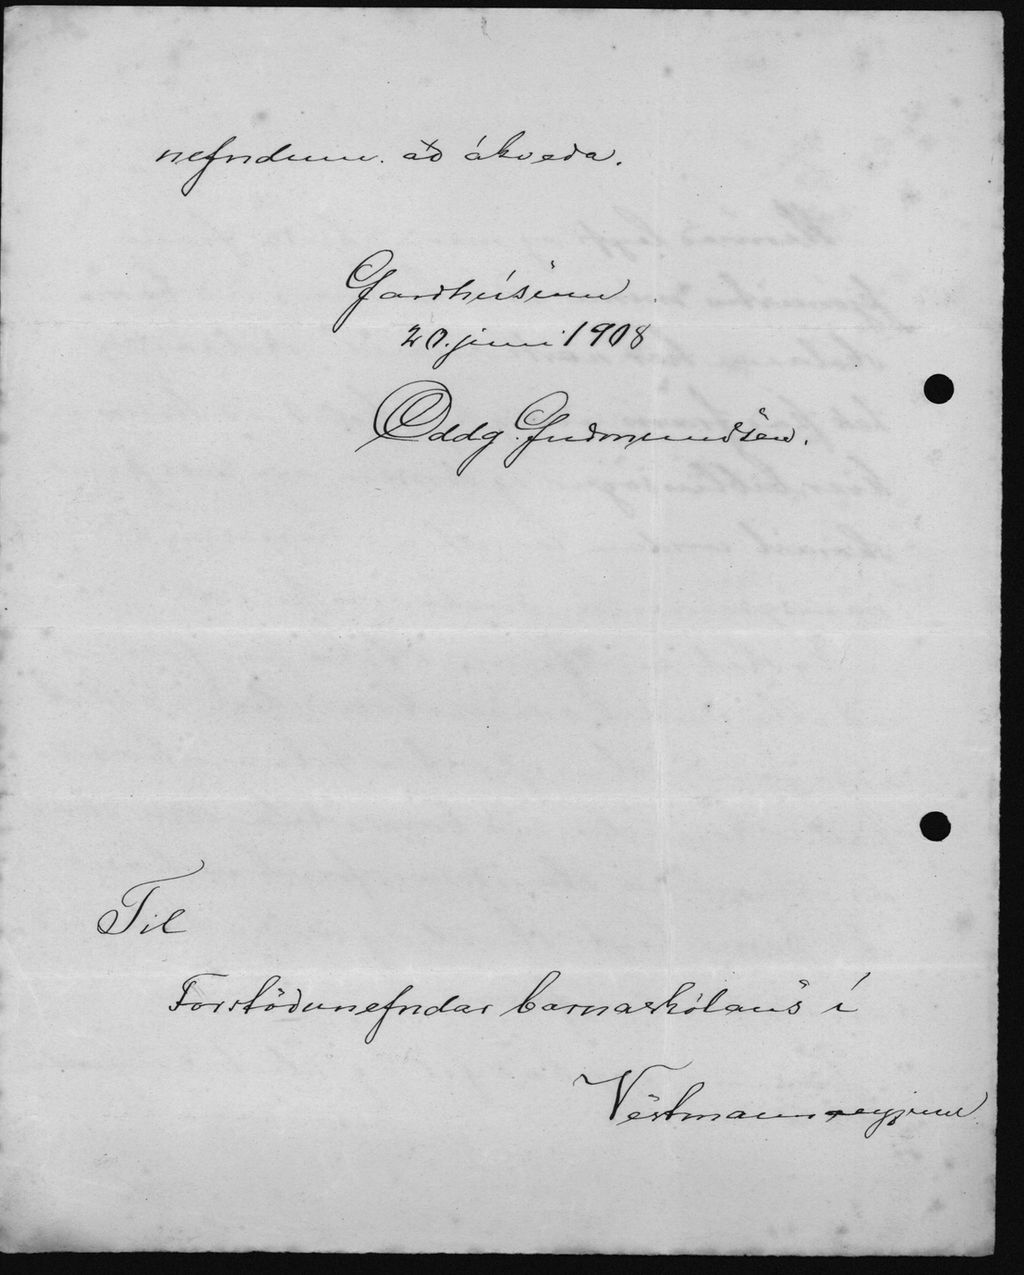 nefndum að ákveda.
Gardhúsum
20. júní 1908
Oddg. Gudmundsen.
Til
Forstödunefndar barnaskólans í
Vestmannaeyjum